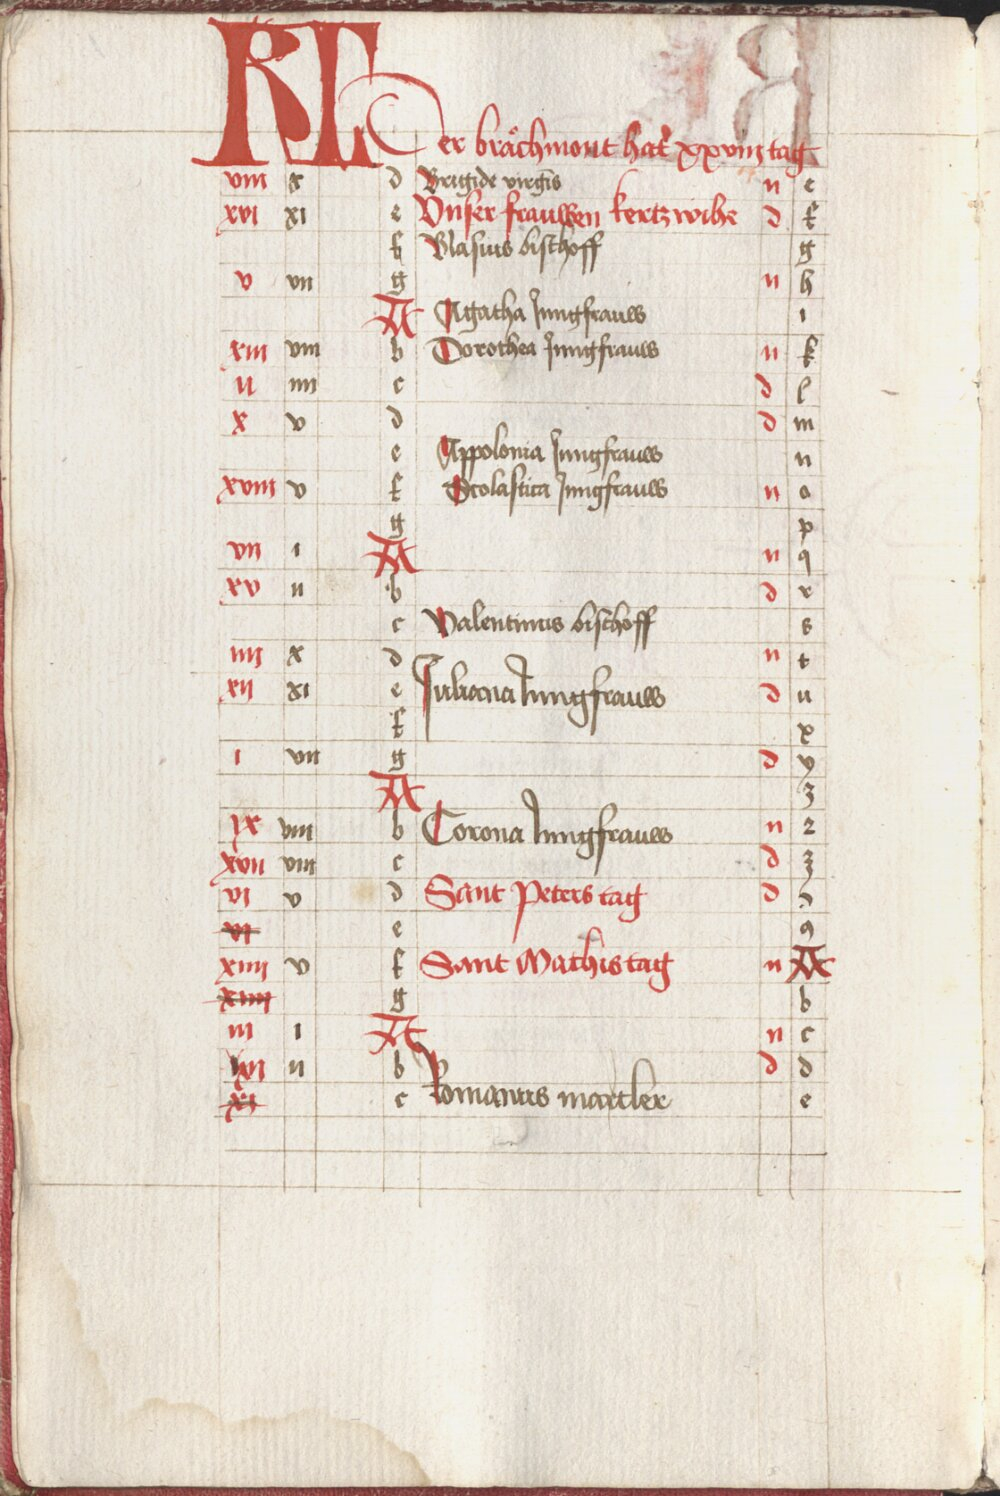 KL Der brǎchmont hat xxviii tag
viii x d Brigide virgis n e
xvi xi e Vnser frauwen kertzwihe d f
f Blasius bischoff g
v vii g n h
A Agatha Jungfrauw i
xiii viii b Dorothea Jungfrauw n k
ii iiii c d l
x v d d m
e Appolonia Jungfrauw n
xviii v f Scolastica Jungfrauw n o
g p
vii i A n q
xv ii b d r
c Valentinus bischoff s
iiii x d n t
xii xi e Juliana Jungfrauw d u
f x
i vii g d y
A z
ix viii b Corona Jungfrauw n 2
xvii viii c d 3
vi v d Sant Peters tag d
vi e 9
xiiii v f Sant Mathis tag n A
xiiii g b
iii i A n c
ii b d d
xi c Romanus martler e